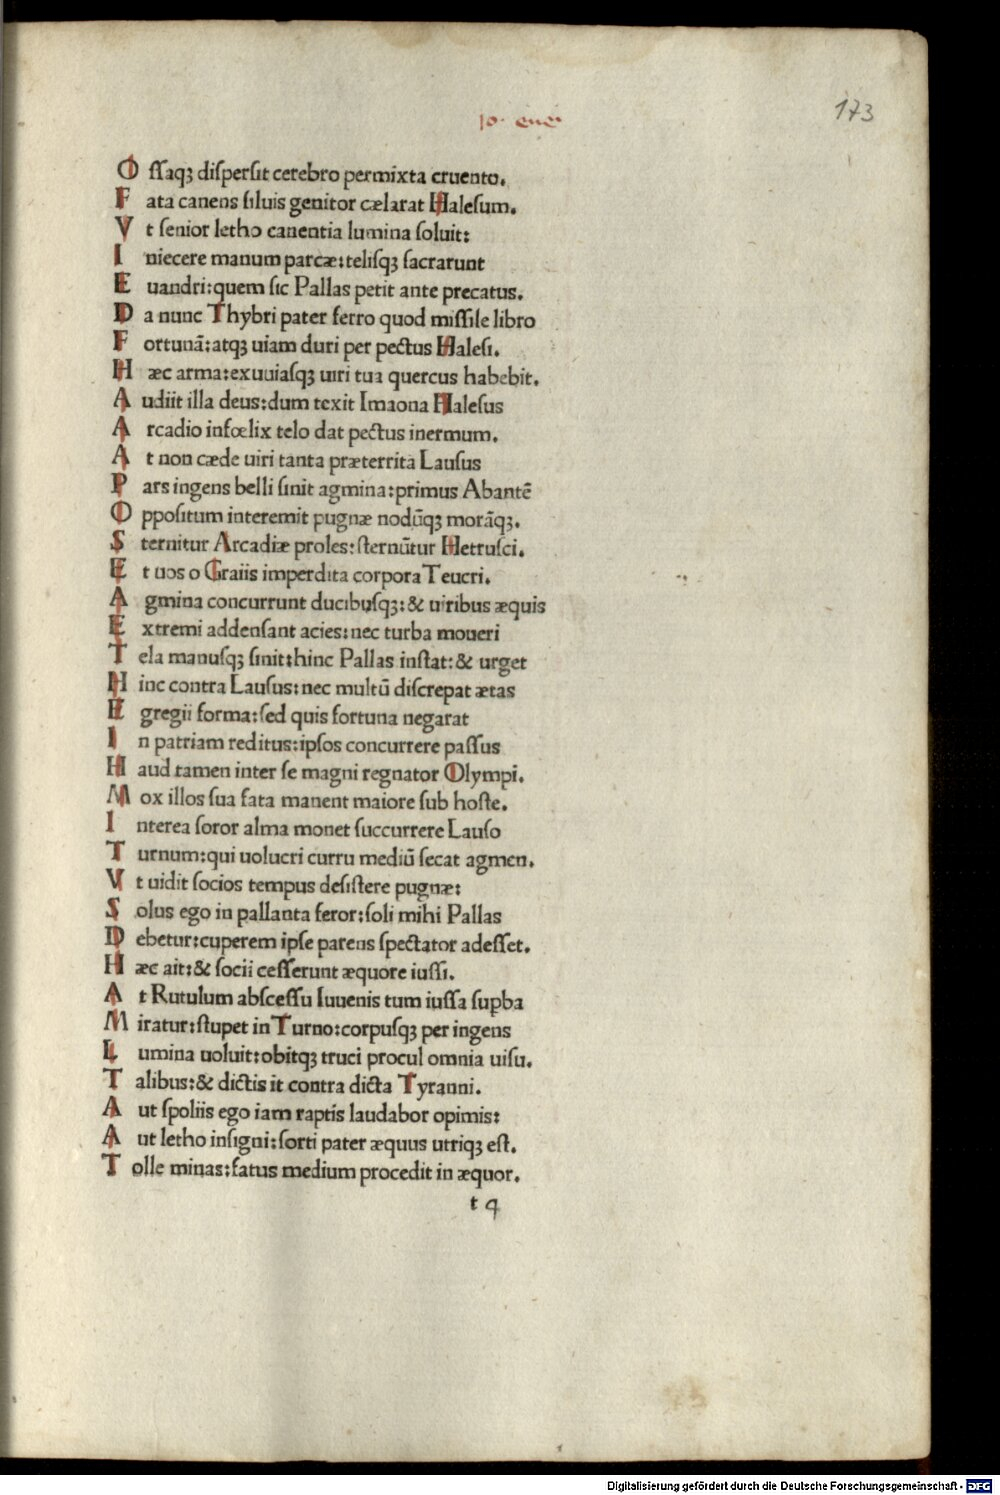 10. ene
173
O ſſaqꝫ diſperſit cerebro permixta cruento.
F ata canens ſiluis genitor cælarat Haleſum.
V t ſenior letho canentia lumina ſoluit:
I niecere manum parcæ: teliſqꝫ ſacrarunt
E uandri: quem ſic Pallas petit ante precatus.
D a nunc Thybri pater ferro quod miſſile libro
F ortunā: atqꝫ uiam duri per pectus Haleſi.
H æc arma: exuuiaſqꝫ uiri tua quercus habebit.
A udiit illa deus: dum texit Imaona Haleſus
A rcadio infœlix telo dat pectus inermum.
A t non cæde uiri tanta præterrita Lauſus
P ars ingens belli ſinit agmina: primus Abantē
O ppoſitum interemit pugnæ nodūqꝫ morāqꝫ.
S ternitur Arcadiæ proles: ſternūtur Hetruſci.
E t uos o Graiis imperdita corpora Teucri.
A gmina concurrunt ducibuſqꝫ: & uiribus æquis
E xtremi addenſant acies: nec turba moueri
T ela manuſqꝫ ſinit: hinc Pallas inſtat: & urget
H inc contra Lauſus: nec multū diſcrepat ætas
E gregii forma: ſed quis fortuna negarat
I n patriam reditus: ipſos concurrere paſſus
H aud tamen inter ſe magni regnator Olympi.
M ox illos ſua fata manent maiore ſub hoſte.
I nterea ſoror alma monet ſuccurrere Lauſo
T urnum: qui uolucri curru mediū ſecat agmen.
V t uidit ſocios tempus deſiſtere pugnæ:
S olus ego in pallanta feror: ſoli mihi Pallas
D ebetur: cuperem ipſe parens ſpectator adeſſet.
H æc ait: & ſocii ceſſerunt æquore iuſſi.
A t Rutulum abſceſſu Iuuenis tum iuſſa ſupba
M iratur: ſtupet in Turno: corpuſqꝫ per ingens
L umina uoluit: obitqꝫ truci procul omnia uiſu.
T alibus: & dictis it contra dicta Tyranni.
A ut ſpoliis ego iam raptis laudabor opimis:
A ut letho inſigni: ſorti pater æquus utriqꝫ eſt.
T olle minas: fatus medium procedit in æquor.
t 4
Digitalisierung gefördert durch die Deutsche Forschungsgemeinschaft - DFG